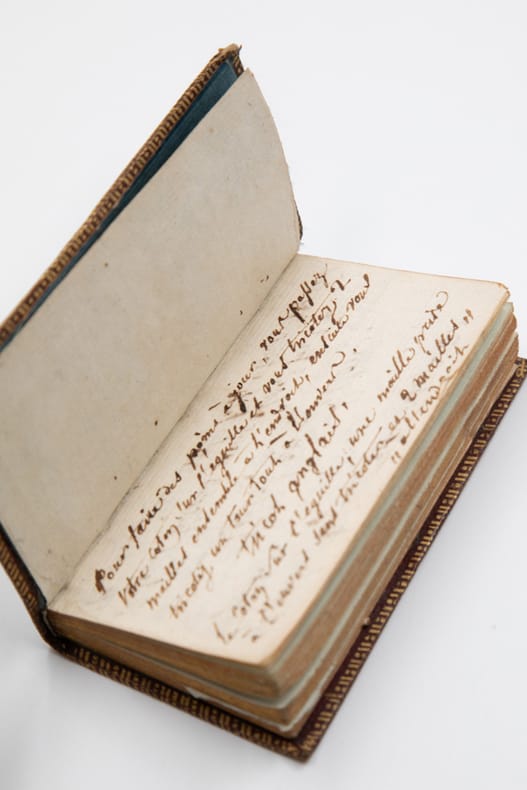 Pour faire des points à jour, vous passez
Votre coton sur l'eguille et vous tricotez 2
mailles ensemble à l'endroit, ensuite vous
tricotez un tour tout à l'envers.
tricot anglais,
le coton sur l'eguille, une maille prise
à l'envers sans tricoter et 2 mailles "
" à l'endroit